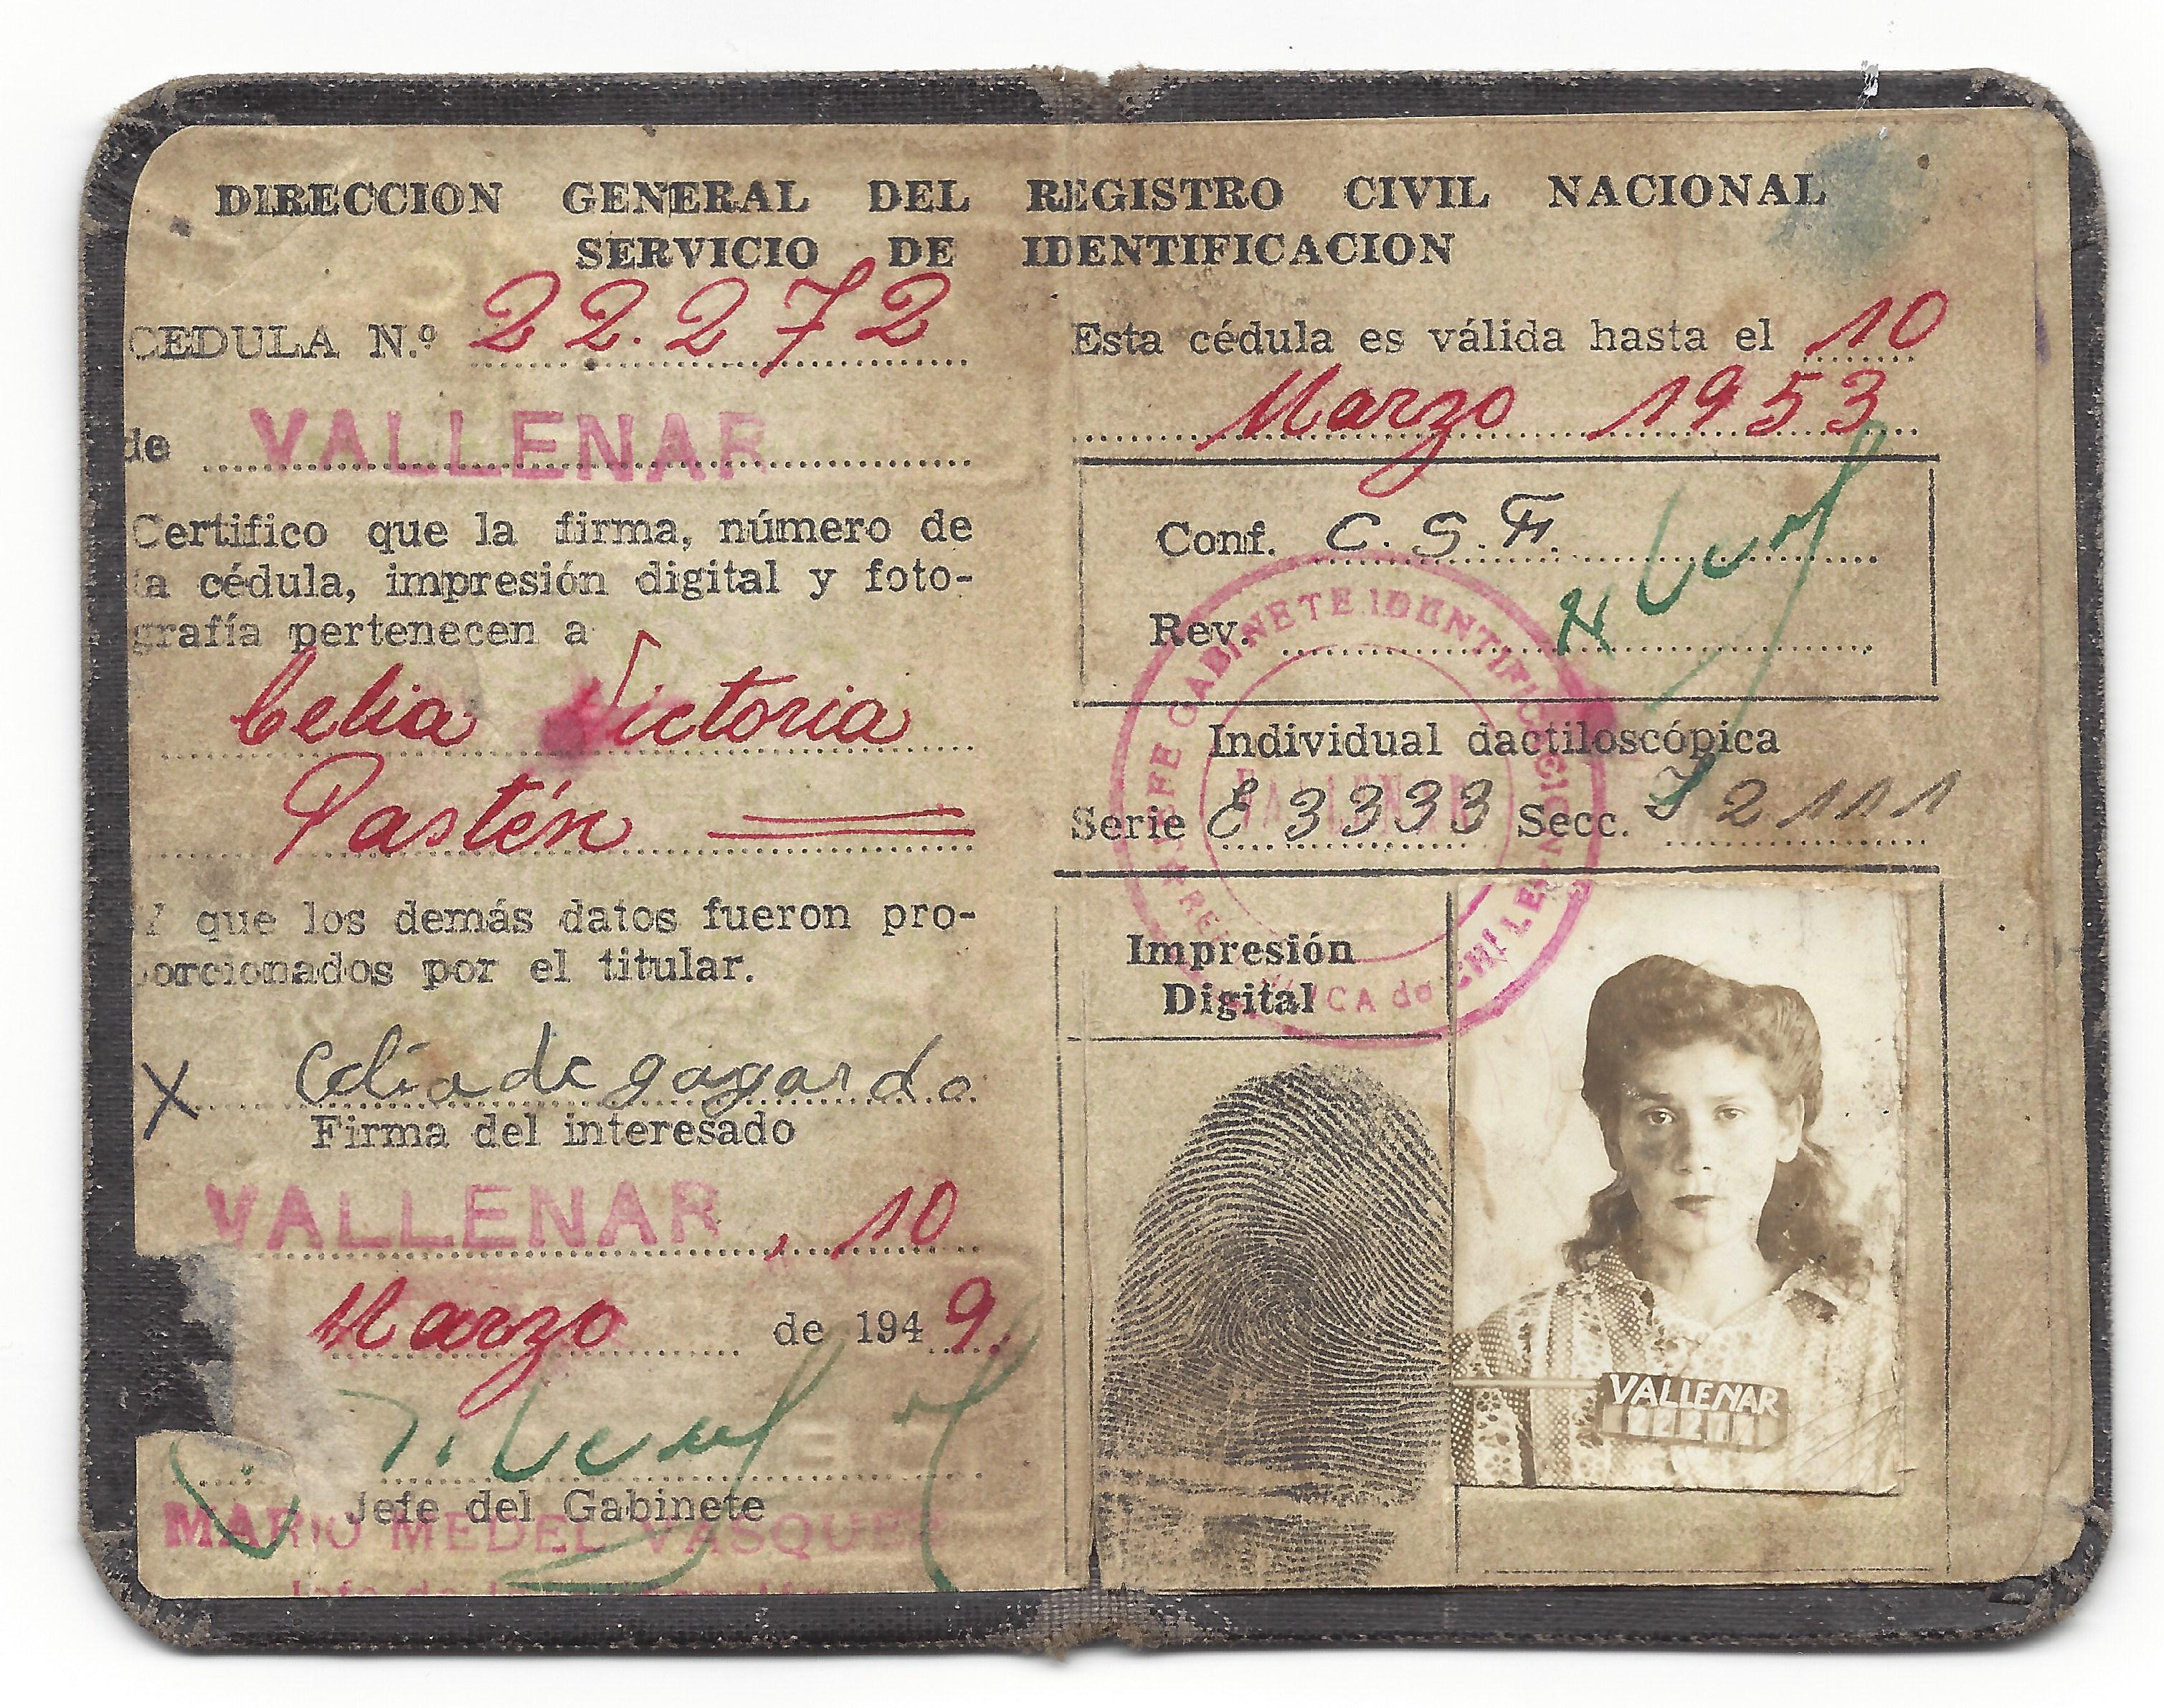 DIRECCION GENERAL DEL REGISTRO CIVIL NACIONAL
SERVICIO DE IDENTIFICACION
CEDULA N.º 22.272
de VALLENAR
Certifico que la firma, número de
la cédula, impresión digital y foto-
grafía pertenecen a
Celia Victoria
Pastén
Y que los demás datos fueron pro-
porcionados por el titular.
X Celia de gagardo
Firma del interesado
VALLENAR, 10
Marzo de 1949.
Jefe del Gabinete
MARIO MEDEL VASQUEZ
Esta cédula es válida hasta el 10
Marzo 1953
Conf. C. S. F.
Rev.
JEFE GABINETE IDENTIFICACION
VALLENAR
REPUBLICA de CHILE
Individual dactiloscópica
Serie E 3333 Secc. I 2111
Impresión
Digital
VALLENAR
22272